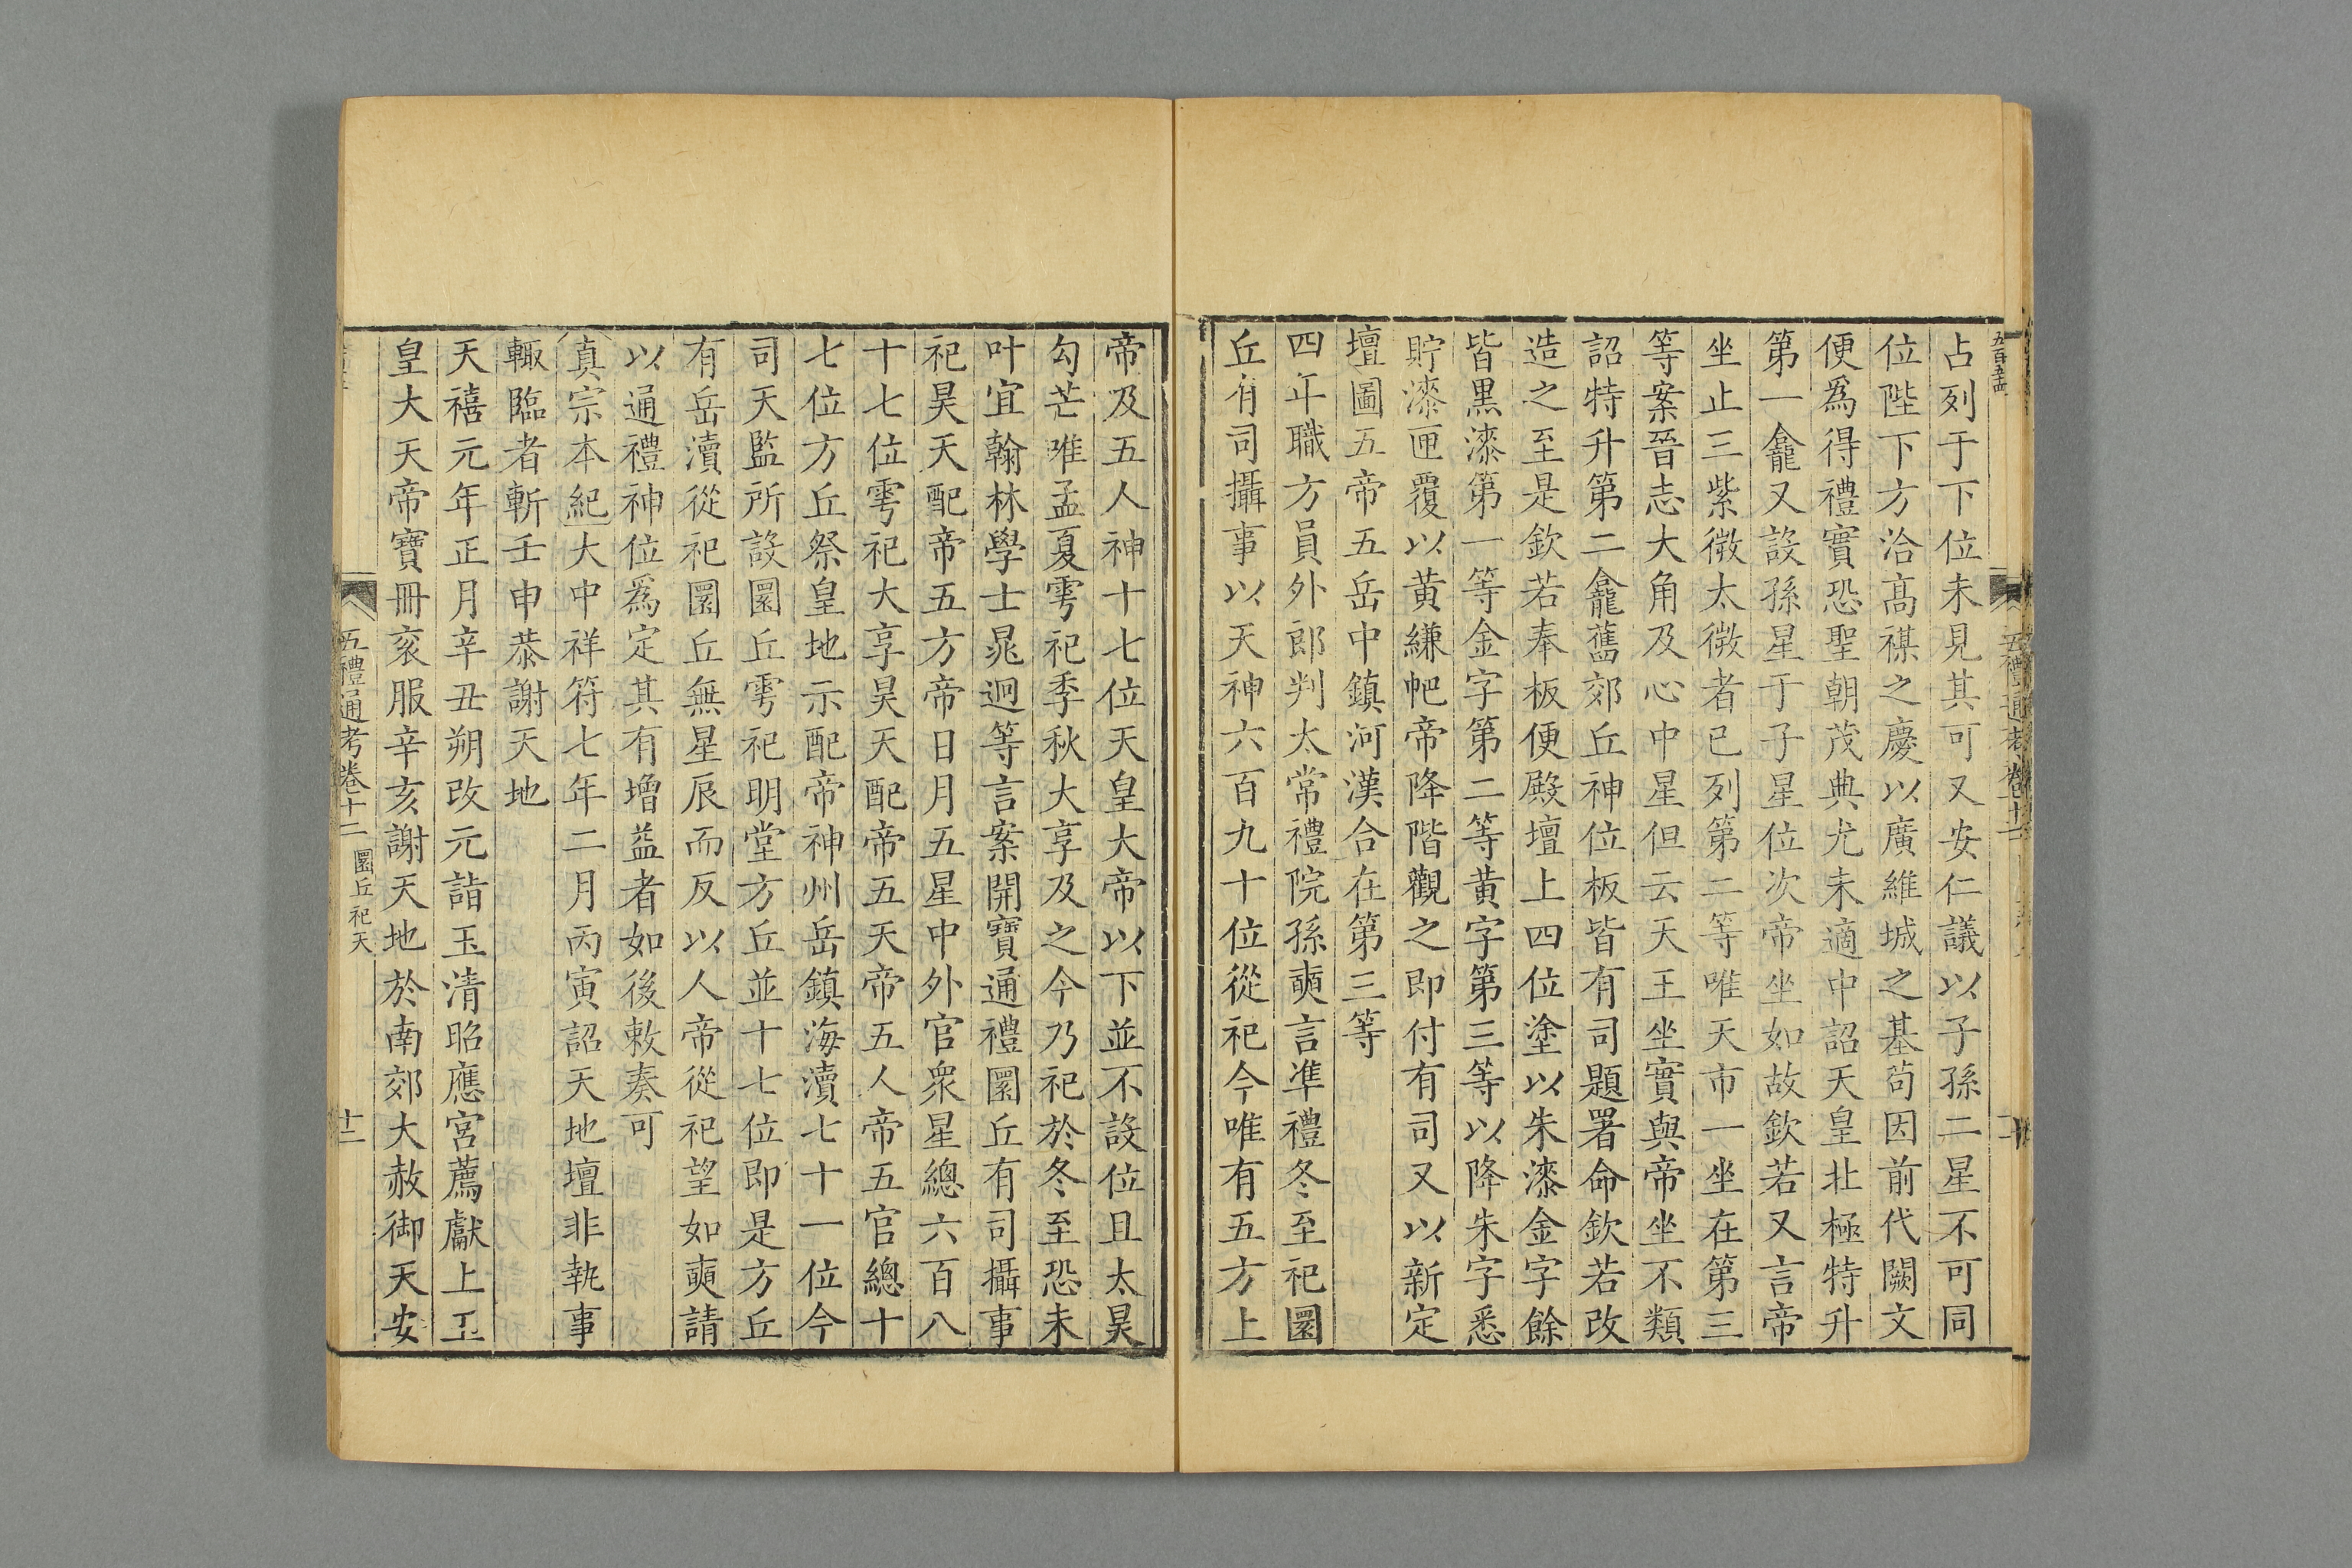 占列于下位未見其可又安仁議以子孫二星不可同
位陛下方洽高禖之慶以廣維城之基茍因前代闕文
便爲得禮實恐聖朝茂典尤未適中詔天皇北極特升
第一龕又設孫星于子星位次帝坐如故欽若又言帝
坐止三紫微太微者已列第二等唯天市一坐在第三
等案晉志大角及心中星但云天王坐實與帝坐不類
詔特升第二龕舊郊丘神位板皆有司題署命欽若改
造之至是欽若奉板便殿壇上四位塗以朱漆金字餘
皆黑漆第一等金字第二等黄字第三等以降朱字悉
貯漆匣覆以黄縑帊帝降階觀之即付有司又以新定
壇圖五帝五岳中鎮河漢合在第三等
四年職方員外郎判太常禮院孫奭言凖禮冬至祀圜
丘有司攝事以天神六百九十位從祀今唯有五方上
帝及五人神十七位天皇大帝以下並不設位且太昊
勾芒唯孟夏雩祀季秋大享及之今乃祀於冬至恐未
叶宜翰林學士晁迥等言案開寶通禮圜丘有司攝事
祀昊天配帝五方帝日月五星中外官衆星總六百八
十七位雩祀大享昊天配帝五天帝五人帝五官總十
七位方丘祭皇地示配帝神州岳鎮海瀆七十一位今
司天監所設圜丘雩祀明堂方丘並十七位即是方丘
有岳瀆從祀圜丘無星辰而反以人帝從祀望如奭請
以通禮神位爲定其有增益者如後敕奏可
真宗本紀大中祥符七年二月丙寅詔天地壇非執事
輒臨者斬壬申恭謝天地
天禧元年正月辛丑朔改元詣玉清昭應宮薦獻上玉
皇大天帝寶冊衮服辛亥謝天地於南郊大赦御天安
五禮通考卷十二 圜丘祀天 十二